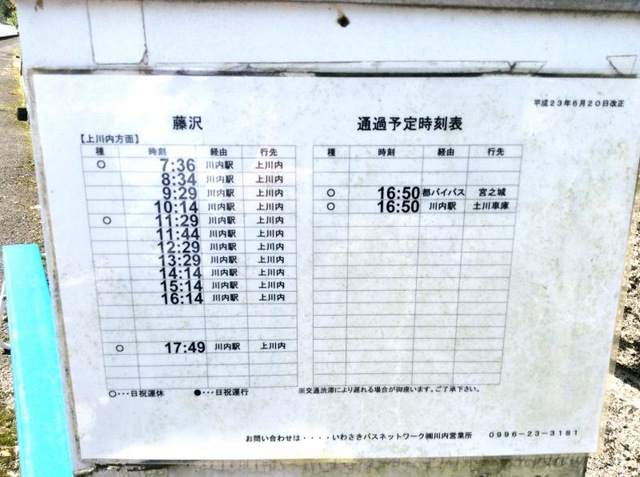 平成23年6月20日改正
藤沢 通過予定時刻表
【上川内方面】
種 時刻 経由 行先
○ 7:36 川内駅 上川内
8:34 川内駅 上川内
9:29 川内駅 上川内
10:14 川内駅 上川内
○ 11:29 川内駅 上川内
11:44 川内駅 上川内
12:29 川内駅 上川内
13:29 川内駅 上川内
14:14 川内駅 上川内
15:14 川内駅 上川内
16:14 川内駅 上川内
○ 17:49 川内駅 上川内
種 時刻 経由 行先
○ 16:50 都バイパス 宮之城
○ 16:50 川内駅 土川車庫
○・・・日祝運休 ●・・・日祝運行
※交通渋滞により遅れる場合が御座います。ご了承下さい。
お問い合わせは・・・・いわさきバスネットワーク㈱川内営業所 0996-23-3181